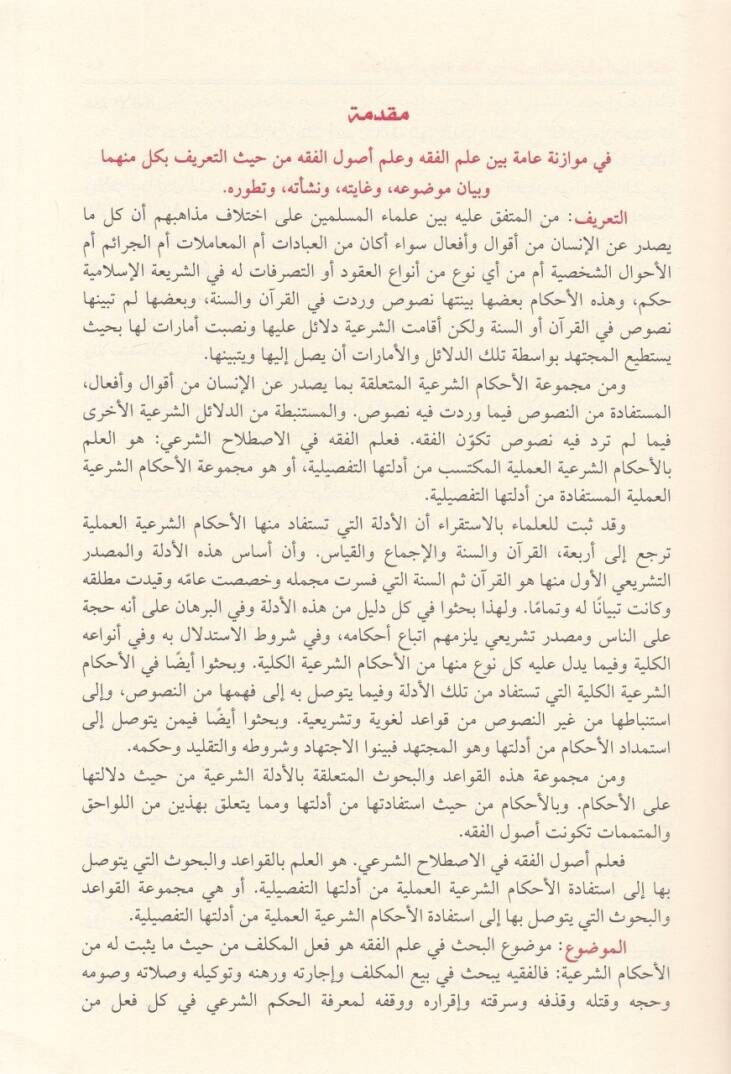 مقدمة
في موازنة عامة بين علم الفقه وعلم أصول الفقه من حيث التعريف بكل منهما
وبيان موضوعه، وغايته، ونشأته، وتطوره.
التعريف: من المتفق عليه بين علماء المسلمين على اختلاف مذاهبهم أن كل ما
يصدر عن الإنسان من أقوال وأفعال سواء أكان من العبادات أم المعاملات أم الجرائم أم
الأحوال الشخصية أم من أي نوع من أنواع العقود أو التصرفات له في الشريعة الإسلامية
حكم، وهذه الأحكام بعضها بينتها نصوص وردت في القرآن والسنة، وبعضها لم تبينها
نصوص في القرآن أو السنة ولكن أقامت الشرعية دلائل عليها ونصبت أمارات لها بحيث
يستطيع المجتهد بواسطة تلك الدلائل والأمارات أن يصل إليها ويتبينها.
ومن مجموعة الأحكام الشرعية المتعلقة بما يصدر عن الإنسان من أقوال وأفعال،
المستفادة من النصوص فيما وردت فيه نصوص. والمستنبطة من الدلائل الشرعية الأخرى
فيما لم ترد فيه نصوص تكوّن الفقه. فعلم الفقه في الاصطلاح الشرعي: هو العلم
بالأحكام الشرعية العملية المكتسب من أدلتها التفصيلية، أو هو مجموعة الأحكام الشرعية
العملية المستفادة من أدلتها التفصيلية.
وقد ثبت للعلماء بالاستقراء أن الأدلة التي تستفاد منها الأحكام الشرعية العملية
ترجع إلى أربعة، القرآن والسنة والإجماع والقياس. وأن أساس هذه الأدلة والمصدر
التشريعي الأول منها هو القرآن ثم السنة التي فسرت مجمله وخصصت عامّه وقيدت مطلقه
وكانت تبيانًا له وتمامًا. ولهذا بحثوا في كل دليل من هذه الأدلة وفي البرهان على أنه حجة
على الناس ومصدر تشريعي يلزمهم اتباع أحكامه، وفي شروط الاستدلال به وفي أنواعه
الكلية وفيما يدل عليه كل نوع منها من الأحكام الشرعية الكلية. وبحثوا أيضًا في الأحكام
الشرعية الكلية التي تستفاد من تلك الأدلة وفيما يتوصل به إلى فهمها من النصوص، وإلى
استنباطها من غير النصوص من قواعد لغوية وتشريعية. وبحثوا أيضًا فيمن يتوصل إلى
استمداد الأحكام من أدلتها وهو المجتهد فبينوا الاجتهاد وشروطه والتقليد وحكمه.
ومن مجموعة هذه القواعد والبحوث المتعلقة بالأدلة الشرعية من حيث دلالتها
على الأحكام. وبالأحكام من حيث استفادتها من أدلتها ومما يتعلق بهذين من اللواحق
والمتممات تكونت أصول الفقه.
فعلم أصول الفقه في الاصطلاح الشرعي. هو العلم بالقواعد والبحوث التي يتوصل
بها إلى استفادة الأحكام الشرعية العملية من أدلتها التفصيلية. أو هي مجموعة القواعد
والبحوث التي يتوصل بها إلى استفادة الأحكام الشرعية العملية من أدلتها التفصيلية.
الموضوع: موضوع البحث في علم الفقه هو فعل المكلف من حيث ما يثبت له من
الأحكام الشرعية: فالفقيه يبحث في بيع المكلف وإجارته ورهنه وتوكيله وصلاته وصومه
وحجه وقتله وقذفه وسرقته وإقراره ووقفه لمعرفة الحكم الشرعي في كل فعل من